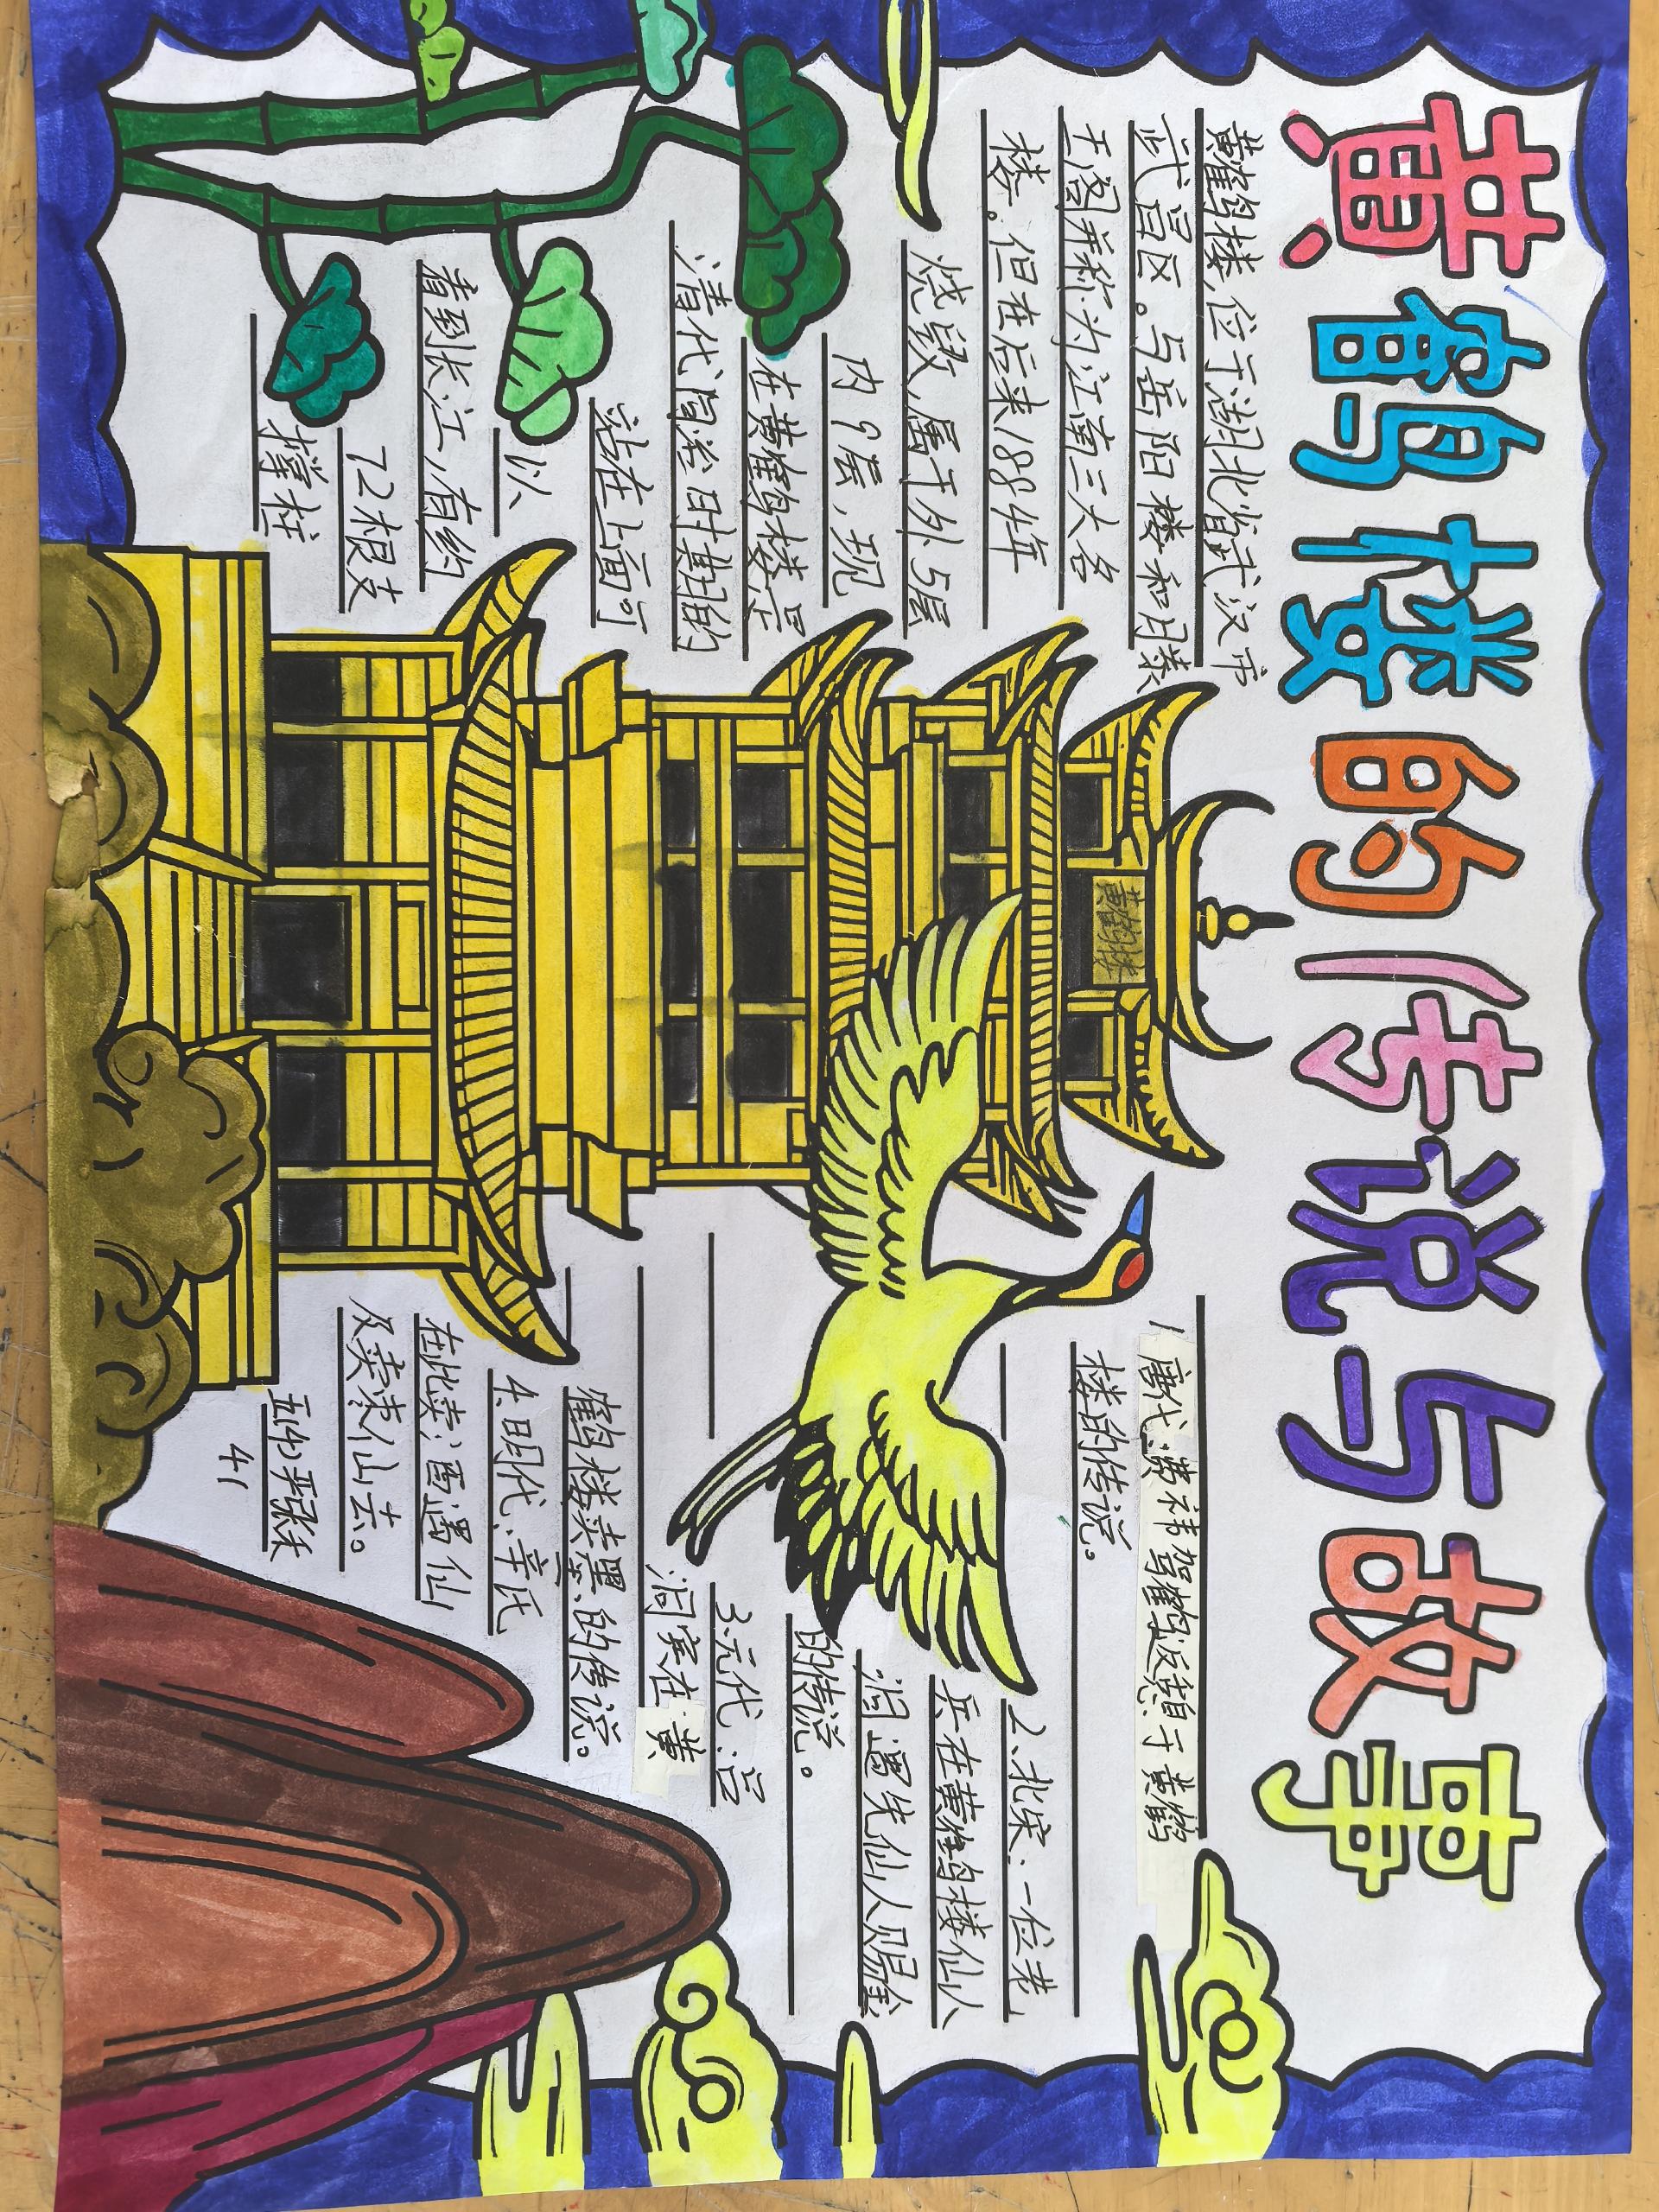 黄鹤楼的传说与故事
黄鹤楼,位于湖北省武汉市
武昌区。与岳阳楼和滕
王阁并称为江南三大名
楼。但在后来1884年
烧毁,属于外5层
内9层,现
在黄鹤楼是
清代同治时期的
站在上面可
以
看到长江,有约
72根支
撑柱
黄鹤楼
1唐代:费祎驾鹤返憩于黄鹤
楼的传说。
2、北宋:一位老
兵在黄鹤楼仙人
洞遇先仙人赐金
的传说。
3元代:吕
洞宾在黄
鹤楼卖墨的传说。
4.明代:辛氏
在此卖酒遇仙
及卖枣仙去。
五(4)
41